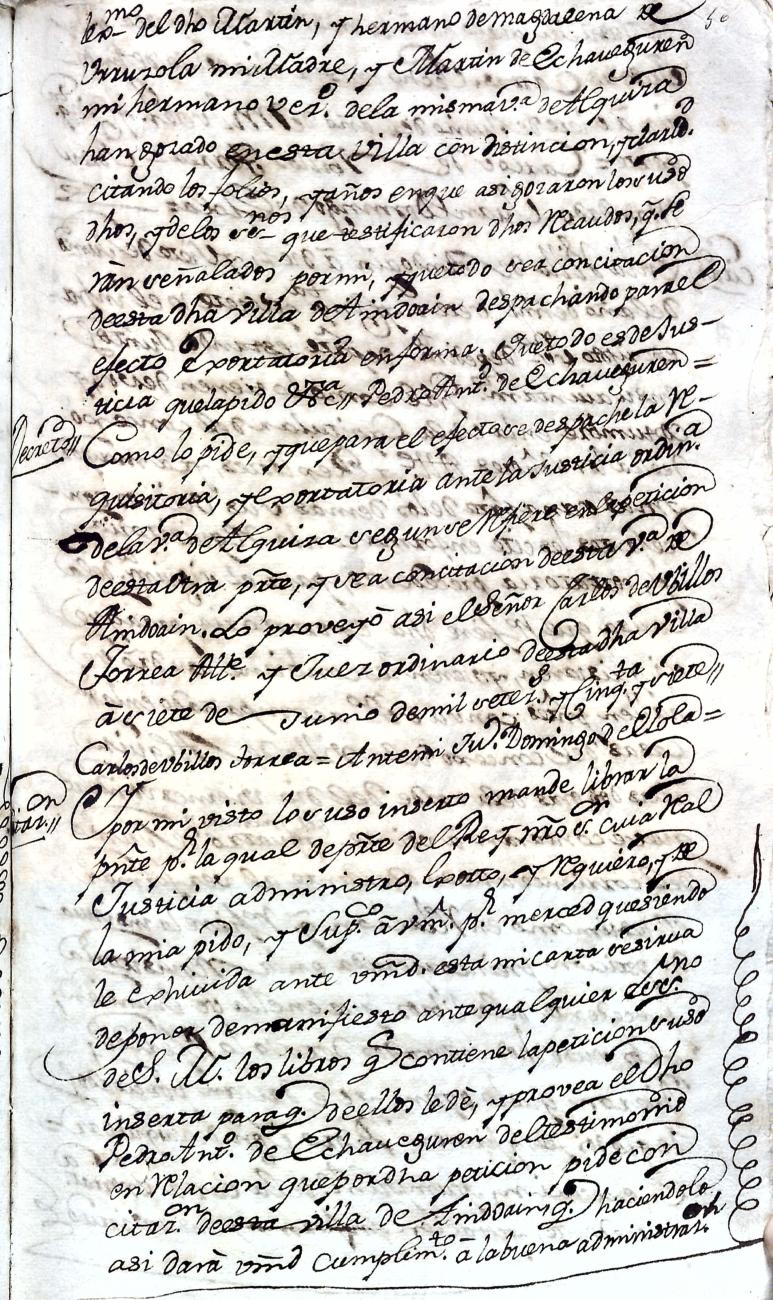 lexmo del dho Martin, y hermano de magdalena de
Urruzola mi Madre, y Martin de Echaveguren
mi hermano vezo. dela misma va de Alquiza
han gozado en esta Villa con distincion, y clarid.
citando los folios, y años en que asi gozaron los suso
dhos, y delos essnos que testificaron dhos Recaudos, q. se
ràn señalados por mi, y que todo sea con citacion
de esta dha Villa de Aindoain despachando para el
efecto Exortatoria en forma. Que todo es de Jus-
ticia que la pido Etca // Pedro Anto. de Echaveguren =
Decreto // Como lo pide, y que para el efecto se despache la Re-
quisitoria, y Exortatoria ante la Justicia ordina.
de la va. de Alquiza segun se refiere en la peticion
de esta otra parte, y sea con citacion de esta va. de
Aindoain. Lo proveyó asi el Señor Carlos de Ubillos
Torrea Alle. y Juez ordinario de esta dha Villa
à siete de Junio de mil seters. y Cinqta. y siete //
Carlos de Ubillos Torrea = Ante mi Ju. Domingo de Ellola =
Y por mi visto lo suso inserto mande librar la
pnte pr. la qual de parte del Rey nro Sor. cuia Real
Justicia administro, Exorto, y Requiero, y de
la mia pido, y Supco. à vm. pr. merced que siendo
le exhivida ante vmd. esta mi carta se sirva
de poner de manifiesto ante qualquier essno
de S. M. los libros q. contiene la peticion suso
inserta para q. de ellos le dè, y provea el Dho
Pedro Anto. de Echaveguren del testimonio
en Relacion que por dha peticion pide con
citazon. de esta villa de Aindoain q. haciendolo
asi darà vmd cumplimto. à la buena administrazon.